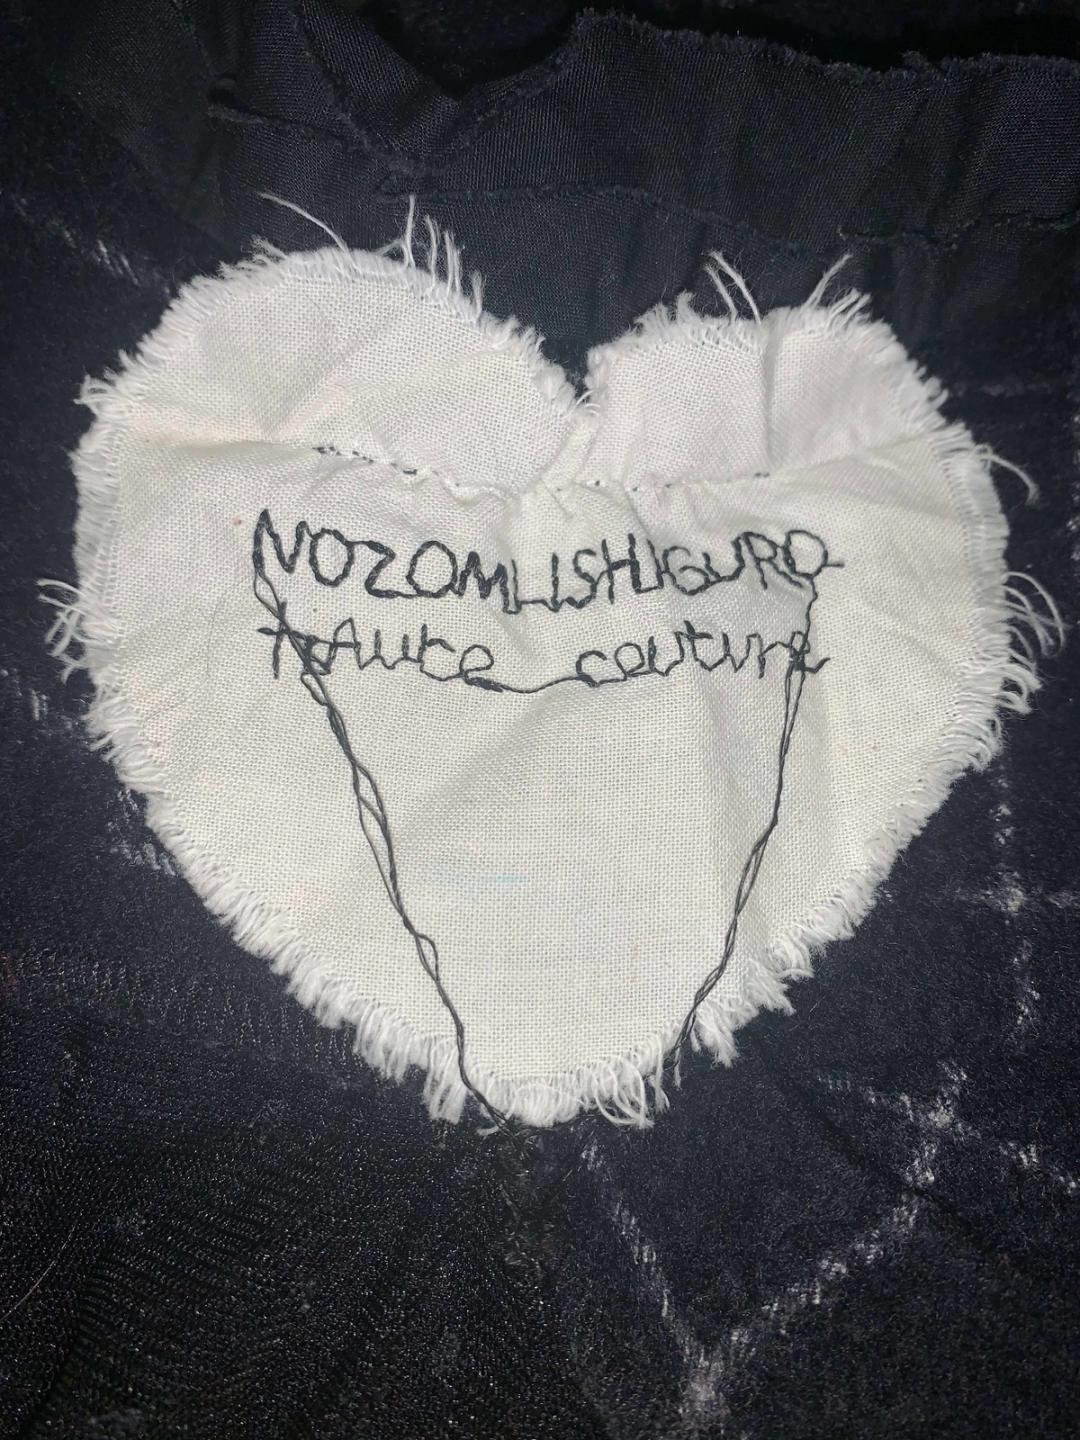 NOZOMI ISHIGURO
hAute couture